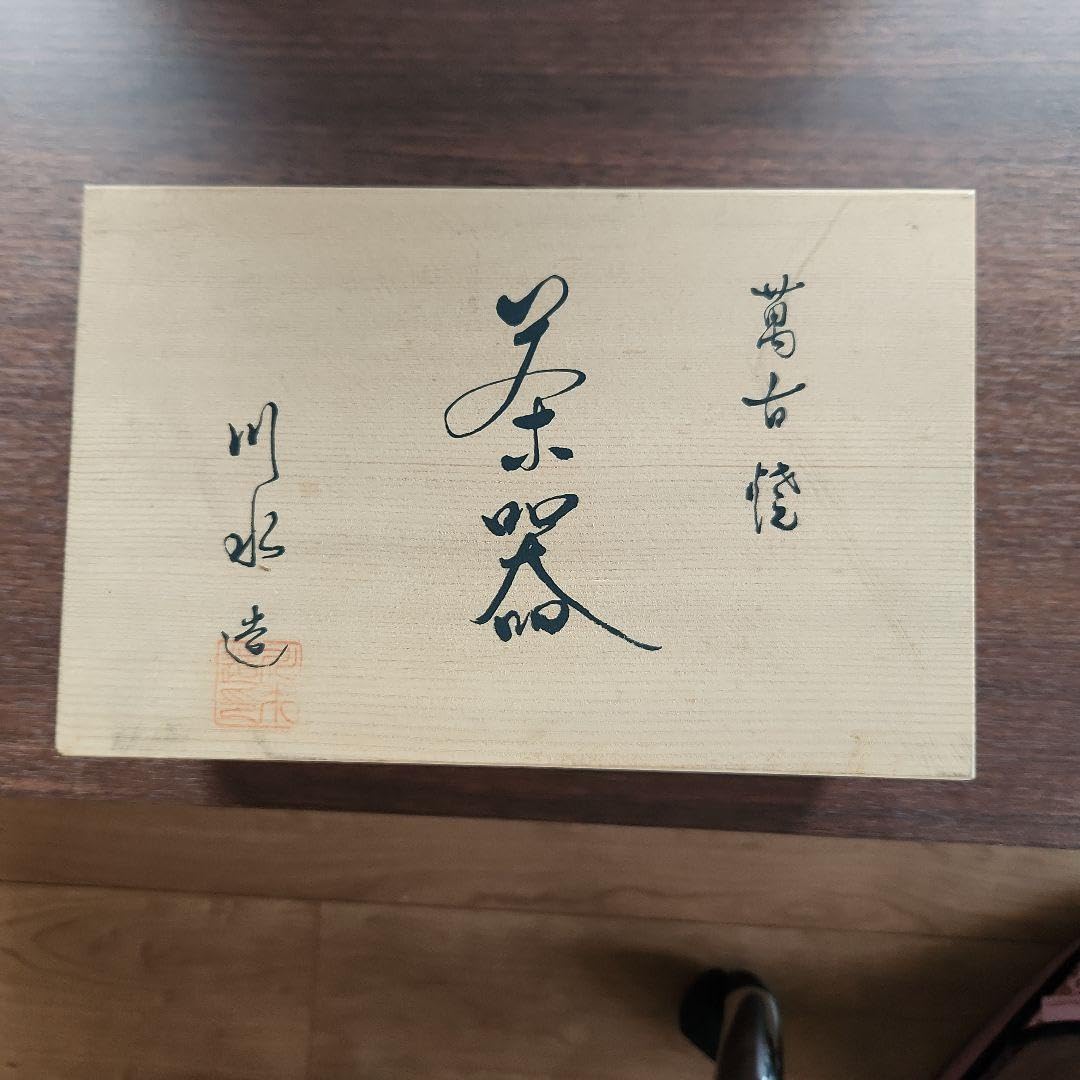 萬古焼
茶器
川水造